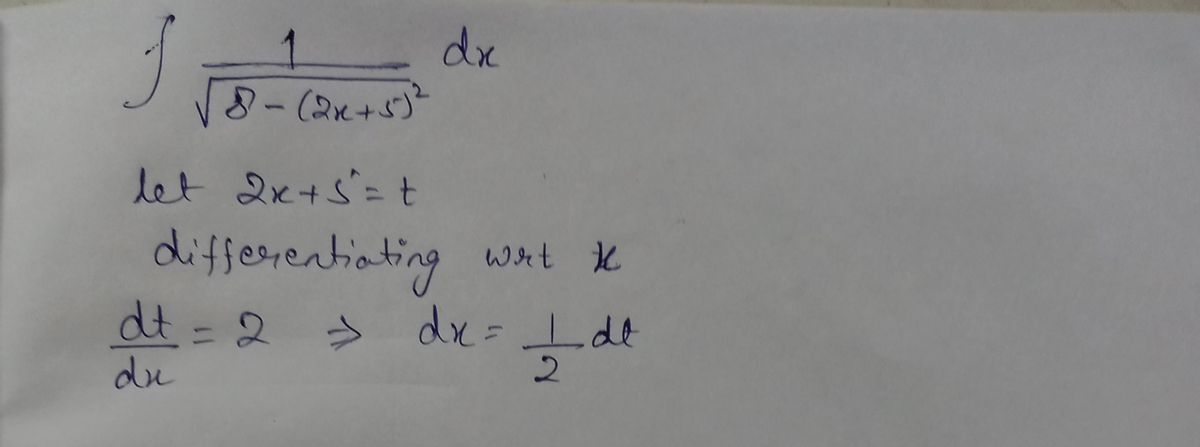 ∫ 1/√(8-(2x+5)²) dx
let 2x+5=t
differentiating wrt x
dt/dx = 2 ⇒ dx = 1/2 dt